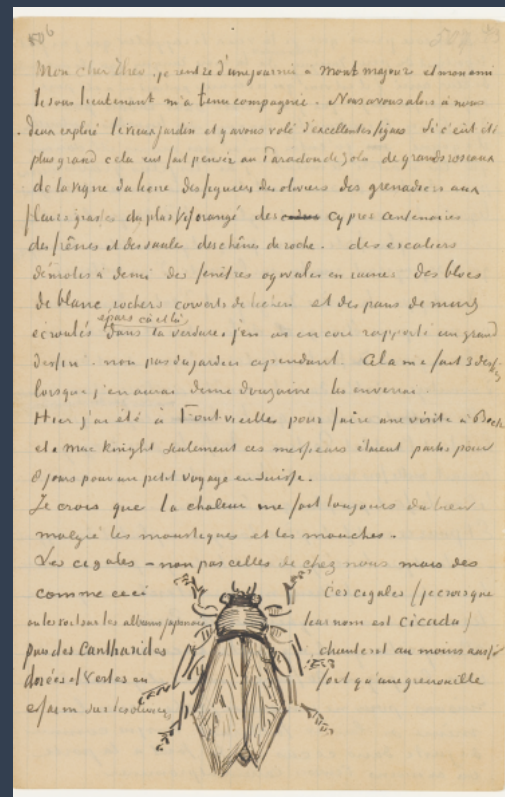 506
507
Mon cher Theo, je rentre d'une journée à Montmajour et mon ami
le sous lieutenant m'a tenu compagnie. Nous avons alors à nous
deux exploré le vieux jardin et y avons volé d'excellentes figues. Si c'eut été
plus grand cela eut fait penser au Paradou de Zola de grands roseaux
de la vigne du lierre des figuiers des oliviers des grenadiers aux
fleurs grasses du plus vif orangé des cyprès centenaires
des frênes et des saules des chênes de roche. des escaliers
démolis à demi des fenêtres ogivales en ruines des blocs
de blanc rochers couverts de lichen et des pans de murs
épars ça et là
écroulés dans la verdure. j'en ai encore rapporté un grand
dessin. non pas du jardin cependant. Cela me fait 3 dessins
lorsque j'en aurai demi douzaine les enverrai
Hier j'ai été à Fontvieilles pour faire une visite à Bock
et à Mac Knight seulement ces messieurs étaient partis pour
8 jours pour un petit voyage en Suisse.
Je crois que la chaleur me fait toujours du bien
malgré les moustiques et les mouches.
Les cigales – non pas celles de chez nous mais des
comme ceci
on les voit sur les albums japonais
puis des Cantharides
dorées et vertes en
essaim sur les oliviers
Ces cigales (je crois que
leur nom est cicada)
chantent au moins aussi
fort qu'une grenouille